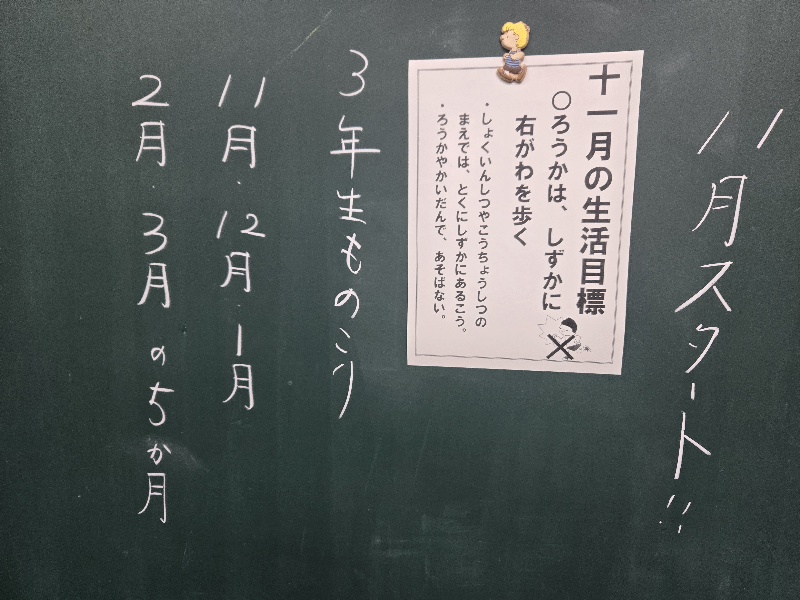 11月スタート!!
十一月の生活目標
○ろうかは、しずかに
右がわを歩く
・しょくいんしつやこうちょうしつの
まえでは、とくにしずかにあるこう。
・ろうかやかいだんで、あそばない。
3年生ものこり
11月.12月.1月
2月.3月の5か月